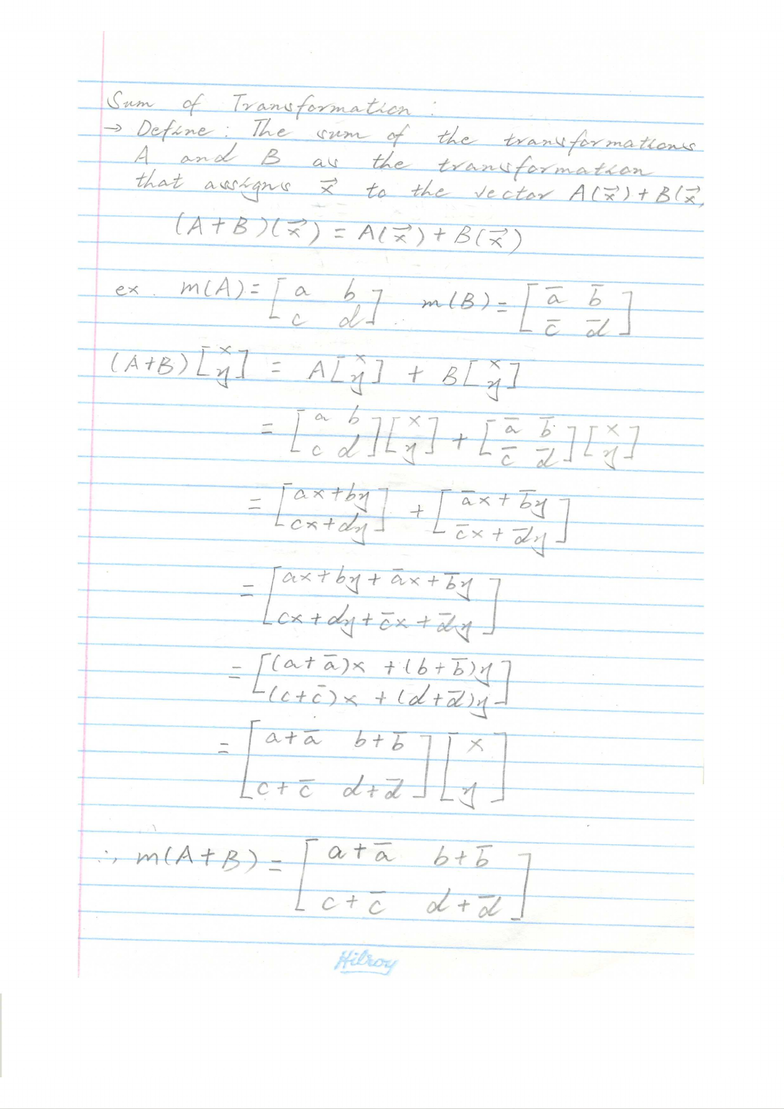 Sum of Transformation :
→ Define : The sum of the transformations
A and B as the transformation
that assigns x⃗ to the vector A(x⃗) + B(x⃗,
(A+B)(x⃗) = A(x⃗) + B(x⃗)
ex. m(A) = [a b; c d] m(B) = [a̅ b̅; c̅ d̅]
(A+B)[x; y] = A[x; y] + B[x; y]
= [a b; c d][x; y] + [a̅ b̅; c̅ d̅][x; y]
= [ax+by; cx+dy] + [a̅x + b̅y; c̅x + d̅y]
= [ax+by+a̅x+b̅y; cx+dy+c̅x+d̅y]
= [(a+a̅)x + (b+b̅)y; (c+c̅)x + (d+d̅)y]
= [a+a̅ b+b̅; c+c̅ d+d̅][x; y]
∴ m(A+B) = [a+a̅ b+b̅; c+c̅ d+d̅]
Hilroy